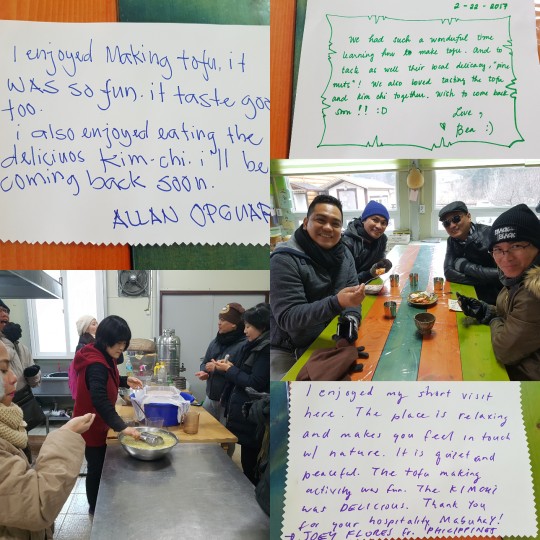 I enjoyed Making tofu. it
WAS so fun. it taste goo
too.
i also enjoyed eating the
deliciuos kim-chi. i'll be
coming back soon.
ALLAN OPGUAR
2-22-2017
We had such a wonderful time
learning how to make tofu. And to
taste as well their local delicacy, "pine
nuts"! We also loved tasting the tofu
and kim chi together. Wish to come back
soon!! :D
Love,
Bea :)
BLACK
BLACK
I enjoyed my short visit
here. The place is relaxing
and makes you feel in touch
w/ nature. It is quiet and
peaceful. The tofu making
activity was fun. The KIMCHI
was DELICIOUS. Thank you
for your hospitality Mabuhay!
→ JOEY FLORES fr. PHILIPPINES